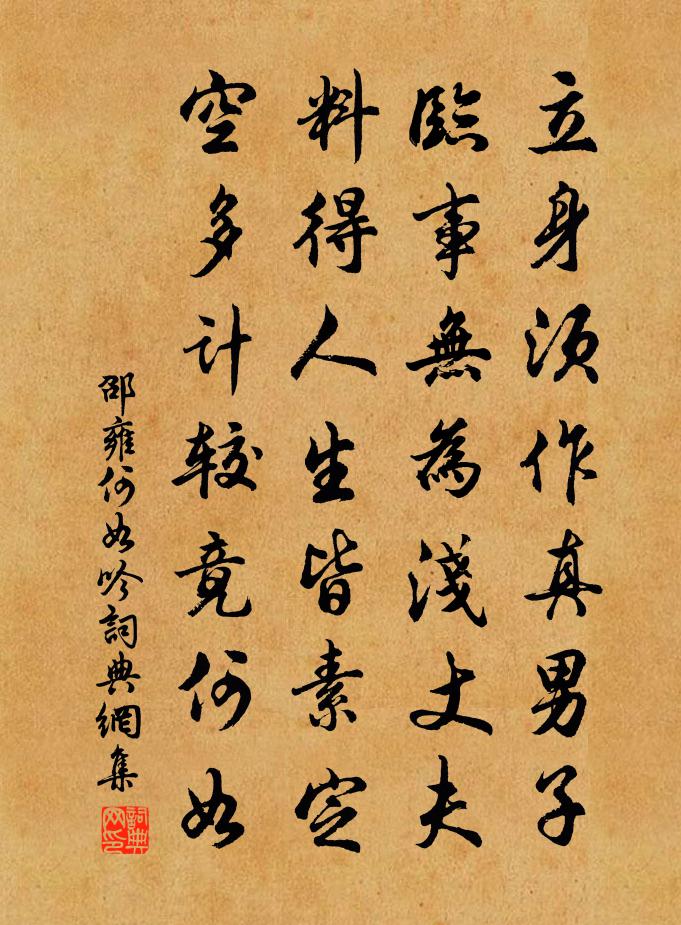 立身須作真男子
臨事無為淺丈夫
料得人生皆素定
空多计较竟何如
邵雍何如吟詞典網集
詞典网印